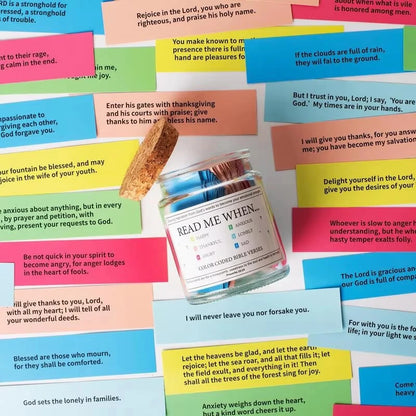 RD is a stronghold for
pressed, a stronghold
s of trouble.
Rejoice in the Lord, you who are
righteous, and praise his holy name.
about when what is vile
is honored among men.
nt to their rage,
ng calm in the end.
me joy.
You make known to m
presence there is fulln
hand are pleasures fo
If the clouds are full of rain,
they wil fal to the ground.
mpassionate to
rgiving each other,
God forgave you.
Enter his gates with thanksgiving
and his courts with praise; give
thanks to him an bless his name.
But I trust in you, Lord; I say, 'You are
God.' My times are in your hands.
I will give you thanks, for you answe
me; you have become my salvation
our fountain be blessed, and may
ejoice in the wife of your youth.
Delight yourself in the Lord,
give you the desires of your
e anxious about anything, but in every
, by prayer and petition, with
ving, present your requests to God.
READ ME WHEN...
HAPPY
THANKFUL
ANGRY
ANXIOUS
LONELY
SAD
COLOR CODED BIBLE VERSES
Whoever is slow to anger h
understanding, but he who
hasty temper exalts folly.
Be not quick in your spirit to
become angry, for anger lodges
in the heart of fools.
The Lord is gracious and
our God is full of compa
will give thanks to you, Lord,
with all my heart; I will tell of all
your wonderful deeds.
I will never leave you nor forsake you.
For with you is the f
life; in your light we s
Blessed are those who mourn,
for they shall be comforted.
Let the heavens be glad, and let the earth
rejoice; let the sea roar, and all that fills it; let
the field exult, and everything in it! Then
shall all the trees of the forest sing for joy.
God sets the lonely in families.
Anxiety weighs down the heart,
but a kind word cheers it up.
Come
heavy